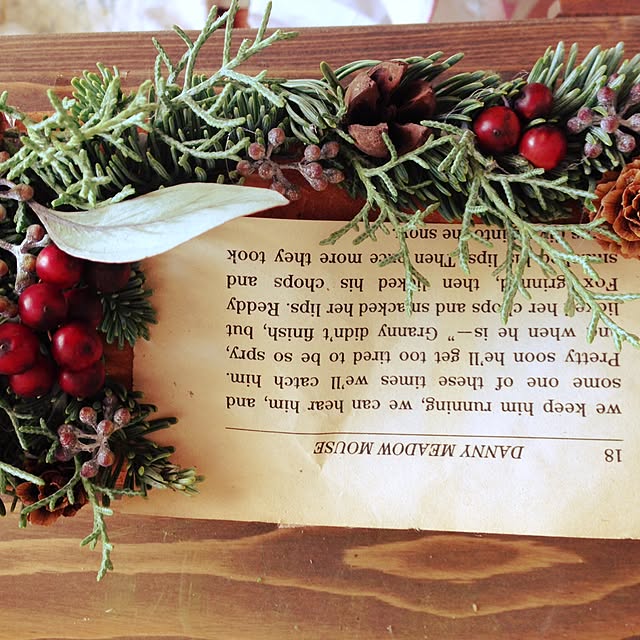 18 DANNY MEADOW MOUSE
we keep him running, we can hear him, and
some one of these times we'll catch him.
Pretty soon he'll get too tired to be so spry,
when he is—" Granny didn't finish, but
her chops and smacked her lips. Reddy
Fox then his chops and
lips. Then once more they took
into the snow.